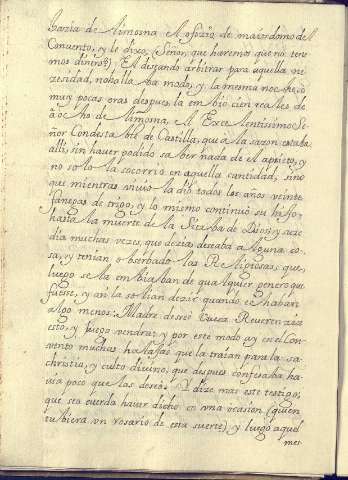 hazia de limosna el ofizio de maiordomo del
Convento, y le dixo, (Señor, que haremos que no tene
mos dinero?) El diseando arbitrar para aquella ne
zesidad, no hallaba modo, y la mesma noche, o
muy pocas oras despues, la embio cien reales de
a ocho de limosna, el Excelentissimo Se
ñor Condestable de Castilla, que a la sazon estaba
alli, sin haver podido saber nada de el aprieto, y
no solo la socorrio en aquella cantidad, sino
que mientras vivio la dio todos los años veinte
fanegas de trigo, y lo mismo continuó su hijo,
hasta la muerte de la Sierba de Dios, y suze
dia muchas vezes, que dezia, deseaba alguna co
sa, y tenian obserbado las Religiosas, que
luego se la embiaban de qualquier genero que
fuese, y ansi la solian dezir quando echaban
algo menos: Madre deseé Vuesa Reverenzia
esto, y luego vendra; y por este modo ay en el Con
vento muchas halajas que la traian para la sa
christia, y culto divino, que despues confesaba ha
via poco que las deseó. Y dize mas este testigo,
que se acuerda haver dicho en una ocasion (quien
tubiera un rosario de esta suerte) y luego aquel
mes